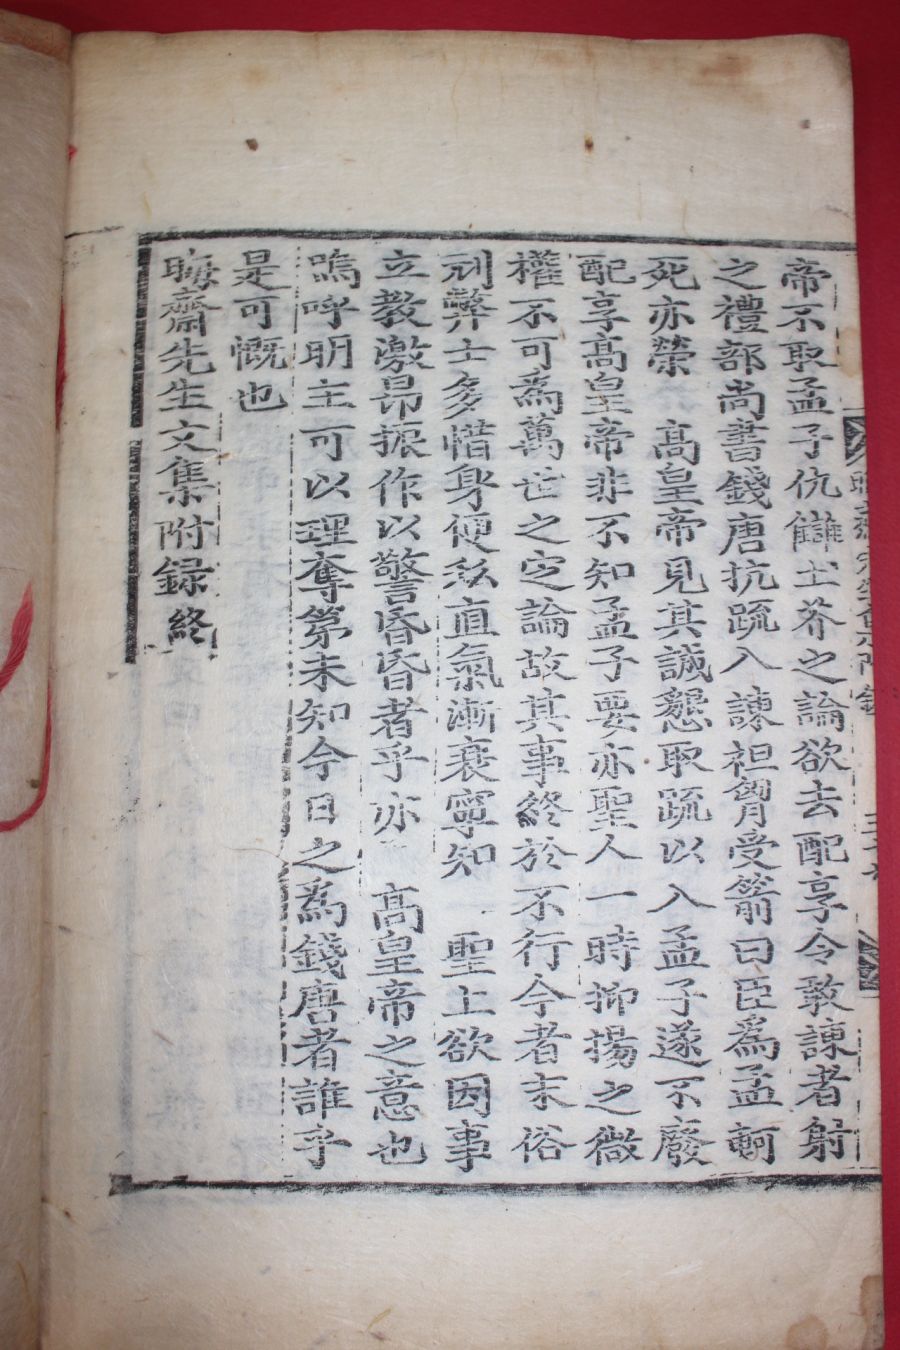 帝不取孟子仇讎土芥之論欲去配享令敢諫者射
之禮部尚書錢唐抗疏入諫袒胷受箭曰臣爲孟軻
死亦榮 高皇帝見其誠懇取疏以入孟子遂不廢
配享高皇帝非不知孟子要亦聖人一時抑揚之微
權不可爲萬世之定論故其事終於不行今者末俗
刓弊士多惜身便私直氣漸衰寧知 聖上欲因事
立教激昂振作以警昏昏者乎亦 高皇帝之意也
嗚呼明主可以理奪第未知今日之爲錢唐者誰乎
是可慨也
晦齋先生文集附錄終